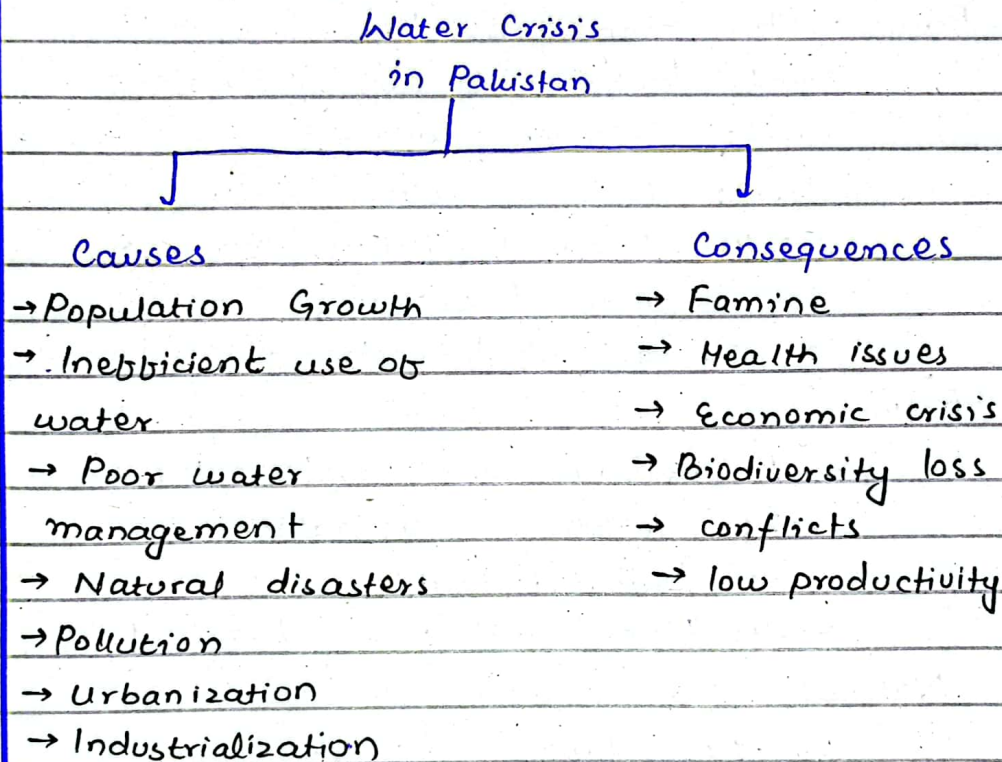 Water Crisis
in Pakistan
Causes
→ Population Growth
→ Inefficient use of
water
→ Poor water
management
→ Natural disasters
→ Pollution
→ Urbanization
→ Industrialization
Consequences
→ Famine
→ Health issues
→ Economic crisis
→ Biodiversity loss
→ conflicts
→ low productivity